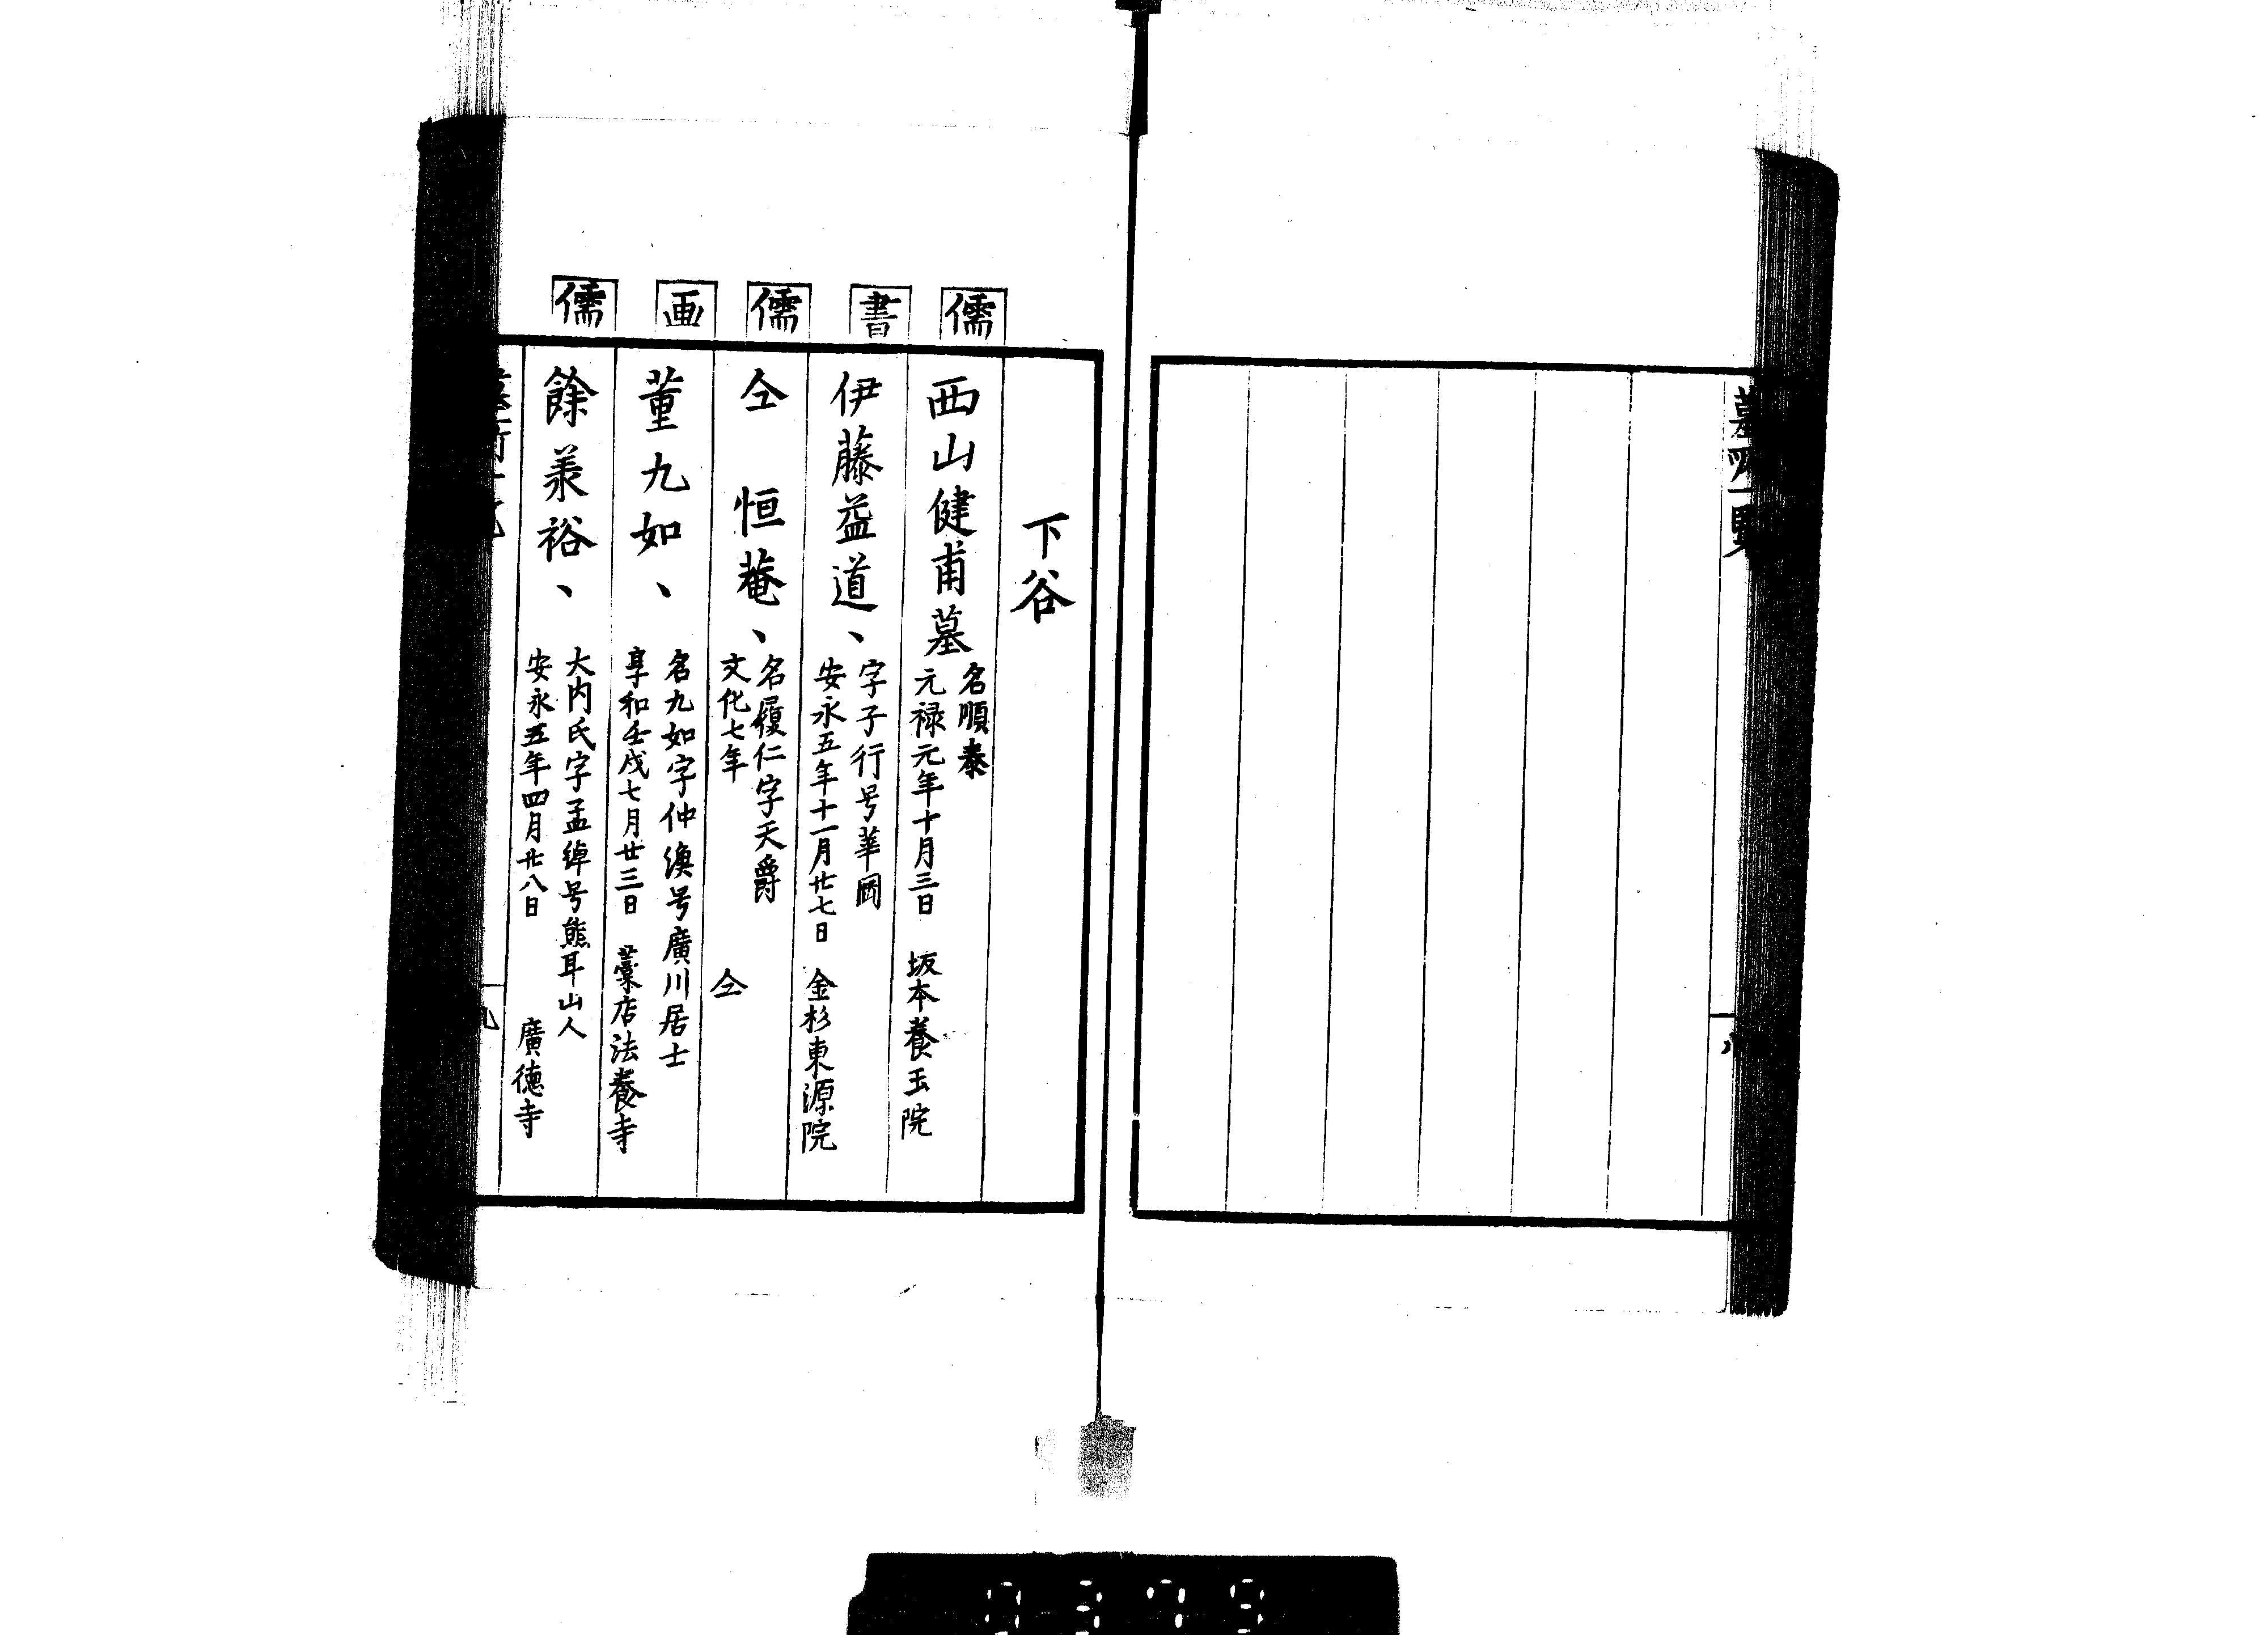 下谷
儒
西山健甫墓
名順泰
元禄元年十月三日 坂本養玉院
書
伊藤益道、
字子行号華岡
安永五年十一月廿七日 金杉東源院
儒
仝 恒菴、
名履仁字天爵
文化七年 仝
画
董九如、
名九如字仲漁号廣川居士
享和壬戌七月廿三日 藁店法養寺
儒
餘羕裕、
大内氏字孟綽号熊耳山人
安永五年四月廿八日 廣德寺